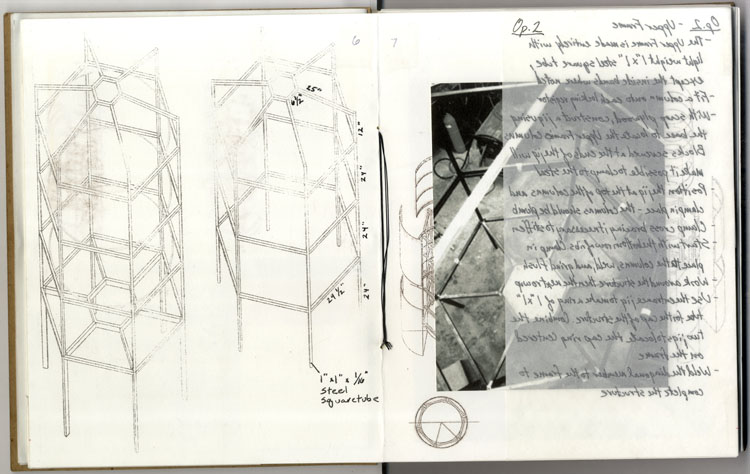 6
25"
6½"
12"
24"
24"
29½"
24"
1"x1" x 1/16"
steel
square tube
7
Op.2
Op.2 - Upper Frame
- The Upper Frame is made entirely with
light weight 1"x1" steel square tube,
except the inside bands when noted
Fit a column onto each locking register
- With scrap plywood, construct a jig using
the base to locate the Upper Frames columns.
Blocks screwed at the ends of the jig will
make it possible to clamp to the steel
Position the jig at the top of the columns and
clamp in place - the columns should be plumb
- Clamp cross bracing if necessary to stiffen
- Start with the bottom row of ribs. Clamp in
place to the columns, weld, and grind flush
- Work around the structure then the next row up
- Use the entrance jig to make a ring of 1"x1"
tube for the cap of the structure. Combine the
two jigs to locate the cap ring centered
on the frame
- Weld the diagonal member to the frame to
complete the structure